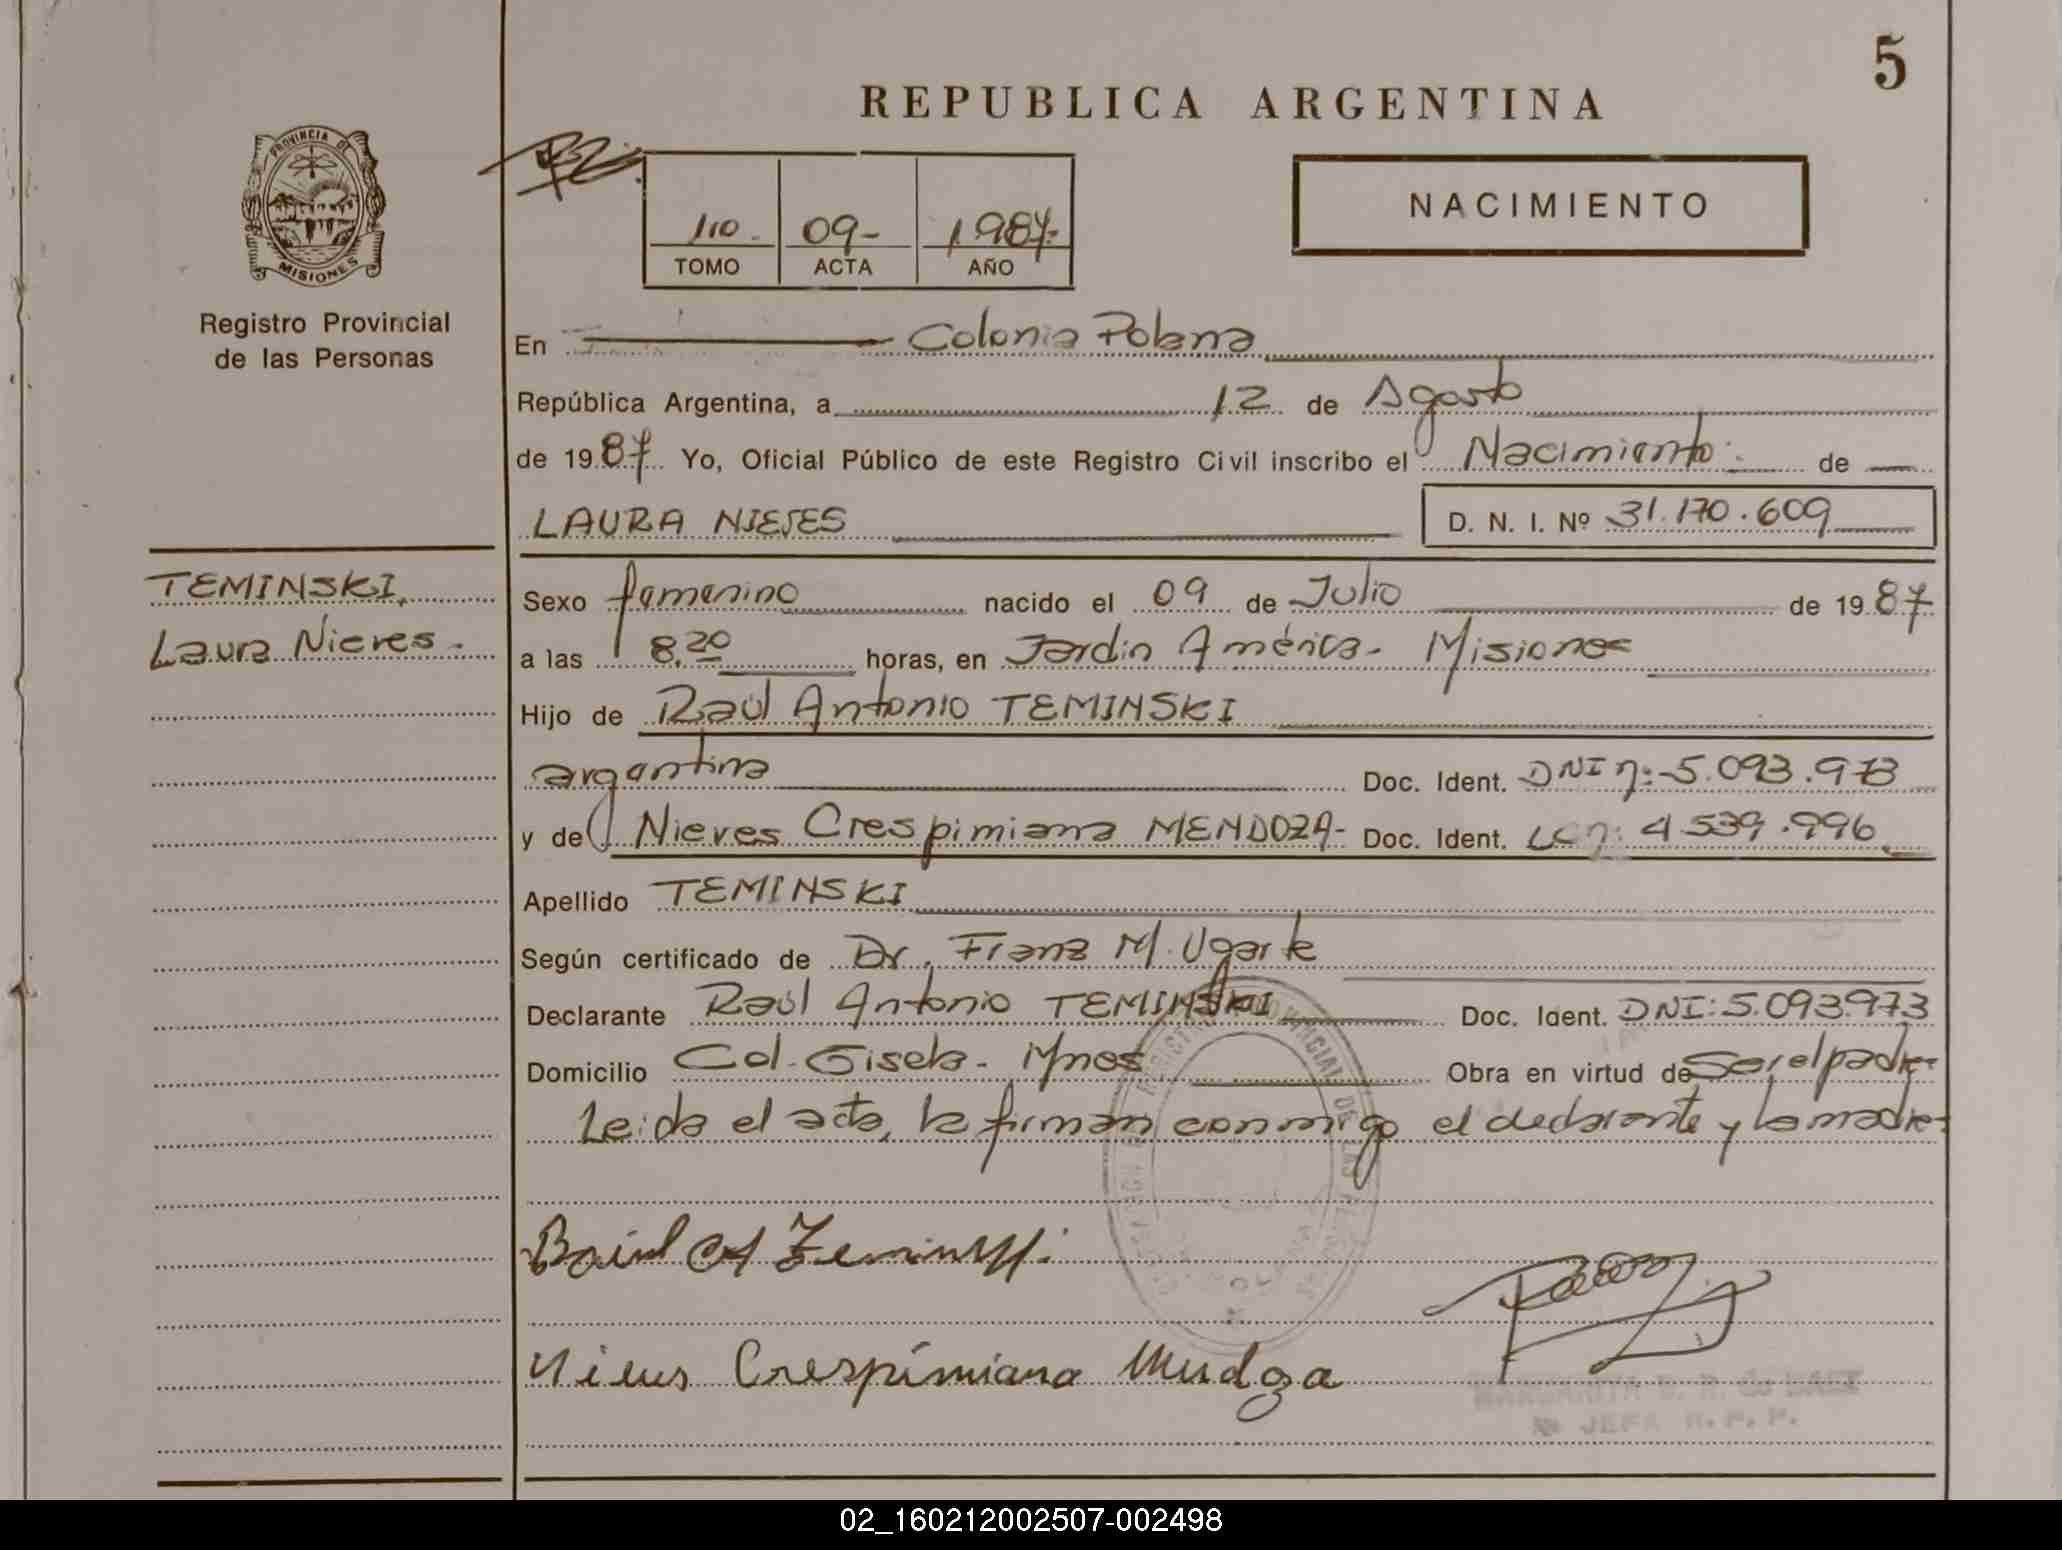 5
REPUBLICA ARGENTINA
NACIMIENTO
110. 09- 1.987.-
TOMO ACTA AÑO
PROVINCIA DE MISIONES
Registro Provincial
de las Personas
En Colonia Polana
República Argentina, a 12 de Agosto
de 1987 Yo, Oficial Público de este Registro Civil inscribo el Nacimiento. de
LAURA NIEVES D. N. I. Nº 31.170.609
TEMINSKI,
Laura Nieves.-
Sexo femenino nacido el 09 de Julio de 1987
a las 8,20 horas, en Jardin América- Misiones
Hijo de Raúl Antonio TEMINSKI
argentina Doc. Ident. DNI nº: 5.093.973
y de Nieves Crespimiana MENDOZA- Doc. Ident. LC nº: 4.539.996
Apellido TEMINSKI
Según certificado de Dr. Franz M. Ugarte
Declarante Raúl Antonio TEMINSKI Doc. Ident. DNI: 5.093.973
Domicilio Col. Gisela- Mnes Obra en virtud de Ser el padre-
Leida el acta, la firman conmigo el declarante y la madre-
Raúl A Teminski.
Nieves Crespimiana Mendoza
MARGARITA B. R. de BAEZ
JEFA R. P. P.
02_160212002507-002498